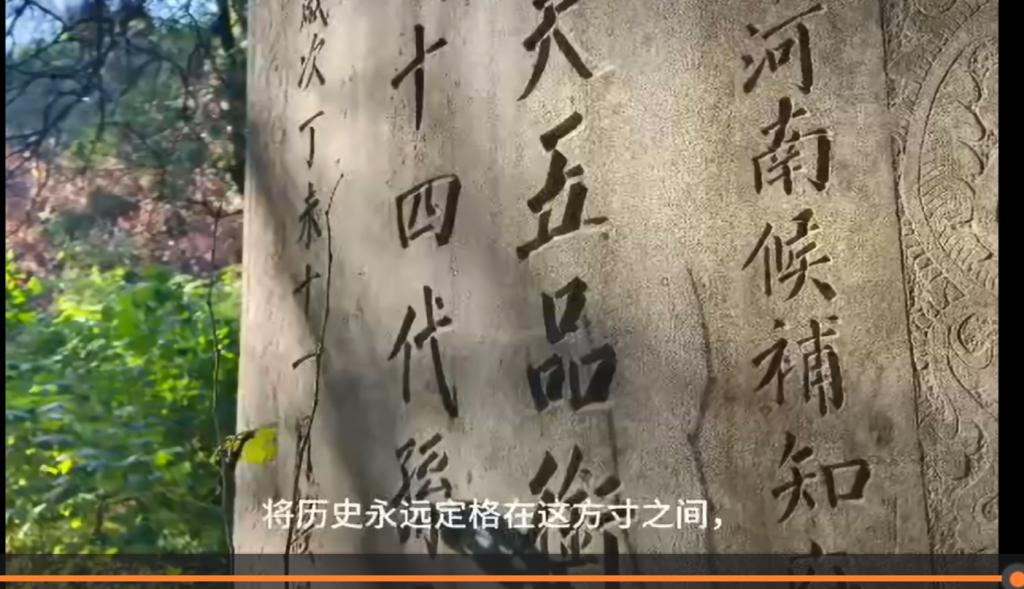 河南候補知
五品衔
十四代孫
歳次丁未十一月
将历史永远定格在这方寸之间，